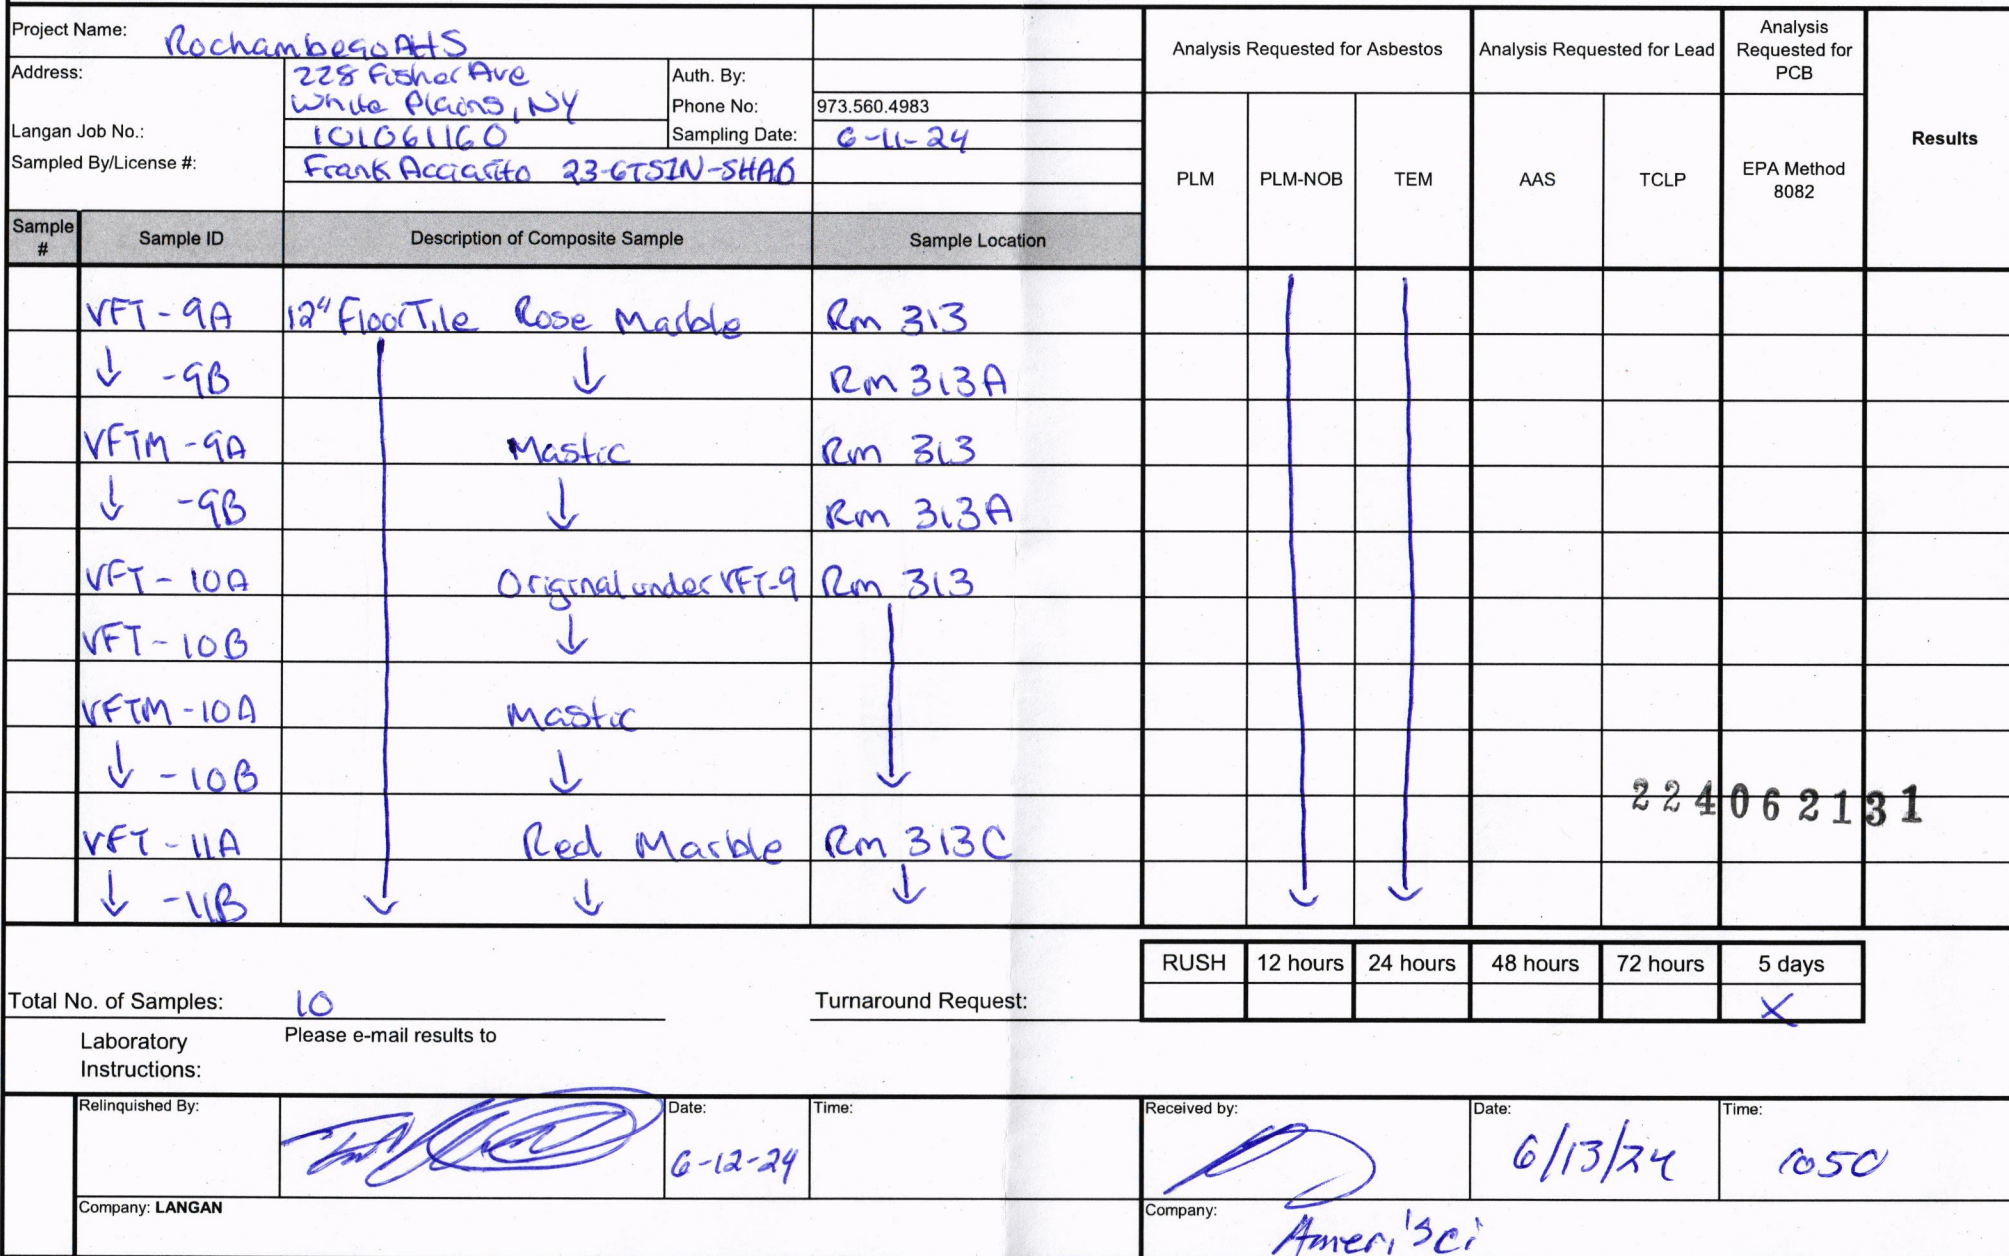 Project Name: Rochambeau AHS
Address: 228 Fisher Ave
White Plains, NY
Auth. By:
Phone No: 973.560.4983
Langan Job No.: 101061160
Sampling Date: 6-11-24
Sampled By/License #: Frank Acciarito 23-6TSIN-SHAB
Analysis Requested for Asbestos
Analysis Requested for Lead
Analysis Requested for PCB
Results
PLM PLM-NOB TEM AAS TCLP EPA Method 8082
Sample # Sample ID Description of Composite Sample Sample Location
VFT-9A 12" Floor Tile Rose Marble Rm 313
↓ -9B ↓ Rm 313A
VFTM-9A Mastic Rm 313
↓ -9B ↓ Rm 313A
VFT-10A Original under VFT-9 Rm 313
VFT-10B ↓
VFTM-10A Mastic
↓ -10B ↓ ↓
VFT-11A Red Marble Rm 313C
↓ -11B ↓ ↓ ↓ ↓ ↓
224062131
RUSH 12 hours 24 hours 48 hours 72 hours 5 days
Total No. of Samples: 10 Turnaround Request: X
Laboratory Instructions: Please e-mail results to
Relinquished By: Date: 6-12-24 Time:
Received by: Date: 6/13/24 Time: 1050
Company: LANGAN
Company: Ameri'Sci